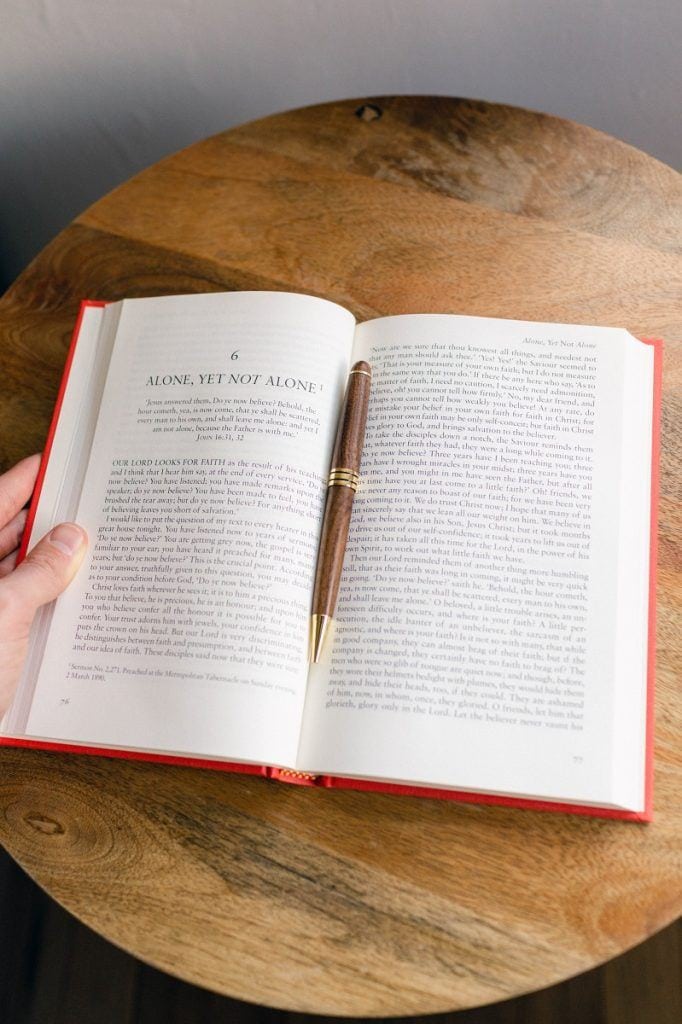 6
ALONE, YET NOT ALONE 1
'Jesus answered them, Do ye now believe? Behold, the
hour cometh, yea, is now come, that ye shall be scattered,
every man to his own, and shall leave me alone: and yet I
am not alone, because the Father is with me.'
JOHN 16:31, 32
OUR LORD LOOKS FOR FAITH as the result of his teaching
and I think that I hear him say, at the end of every service, 'Do
ye now believe? You have listened; you have made remark upon the
speaker; do ye now believe? You have been made to feel, you have
brushed the tear away; but do ye now believe? For anything short
of believing leaves you short of salvation.'
I would like to put the question of my text to every hearer in this
great house tonight. You have listened now to years of sermons.
'Do ye now believe?' You are getting grey now, the gospel is very
familiar to your ear; you have heard it preached for many, many
years; but 'do ye now believe?' This is the crucial point. According
to your answer, truthfully given to this question, you may
as to your condition before God, 'Do ye now believe?'
Christ loves faith wherever he sees it; it is to him a precious thing.
To you that believe, he is precious, he is an honour; and upon him
you who believe confer all the honour it is possible for you to
confer. Your trust adorns him with jewels, your confidence in him
puts the crown on his head. But our Lord is very discriminating,
he distinguishes between faith and presumption, and between faith
and our idea of faith. These disciples said now that they were sure
1 Sermon No. 2,271. Preached at the Metropolitan Tabernacle on Sunday evening,
2 March 1890.
76
Alone, Yet Not Alone
'Now are we sure that thou knowest all things, and needest not
that any man should ask thee.' 'Yes! Yes!' the Saviour seemed to
'That is your measure of your own faith; but I do not measure
in the same way that you do.' If there be any here who say, 'As to
matter of faith, I need no caution, I scarcely need admonition,
believe, oh! you cannot tell how firmly.' No, my dear friend, and
perhaps you cannot tell how weakly you believe! At any rate, do
not mistake your belief in your own faith for faith in Christ; for
belief in your own faith may be only self-conceit; but faith in Christ
gives glory to God, and brings salvation to the believer.
To take the disciples down a notch, the Saviour reminds them
that, whatever faith they had, they were a long while coming to it.
'Do ye now believe? Three years have I been teaching you; three
years have I wrought miracles in your midst; three years have you
seen me, and you might in me have seen the Father, but after all
this time have you at last come to a little faith?' Oh! friends, we
never any reason to boast of our faith; for we have been very
coming to it. We do trust Christ now; I hope that many of us
can sincerely say that we lean all our weight on him. We believe in
God, we believe also in his Son, Jesus Christ; but it took months
to drive us out of our self-confidence; it took years to lift us out of
despair; it has taken all this time for the Lord, in the power of his
own Spirit, to work out what little faith we have.
Then our Lord reminded them of another thing more humbling
still, that as their faith was long in coming, it might be very quick
in going. 'Do ye now believe?' said he. 'Behold, the hour cometh,
yea, is now come, that ye shall be scattered, every man to his own,
and shall leave me alone.' O beloved, a little trouble arises, an un-
foreseen difficulty occurs, and where is your faith? A little per-
secution, the idle banter of an unbeliever, the sarcasm of an
agnostic, and where is your faith? Is it not so with many, that while
in good company, they can almost brag of their faith; but if the
company is changed, they certainly have no faith to brag of? The
men who were so glib of tongue are quiet now; and though, before,
they wore their helmets bedight with plumes, they would hide them
away, and hide their heads, too, if they could. They are ashamed
of him, now, in whom, once, they gloried. O friends, let him that
glorieth, glory only in the Lord. Let the believer never vaunt his
77